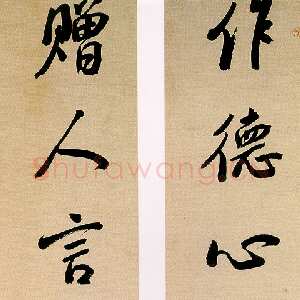 作德心
赠人言
Shufawang.cn